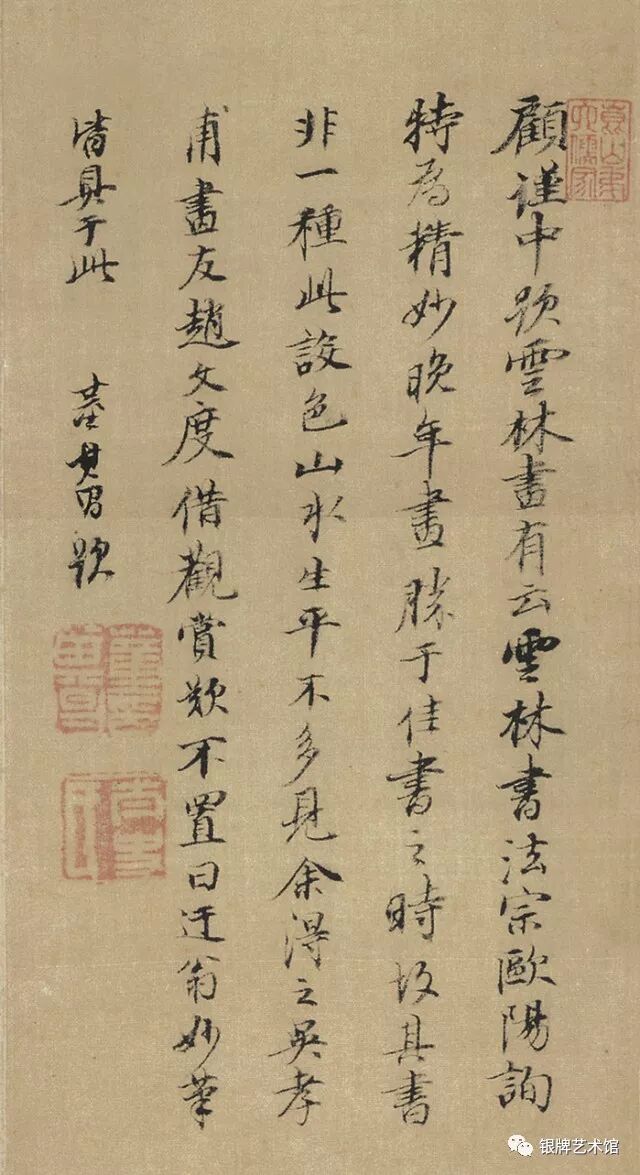 顧謹中題雲林畫有云雲林書法宗歐陽詢
特為精妙晚年畫勝于佳書之時故其書
非一種此設色山水生平不多見余得之吳孝
甫畫友趙文度借觀賞歎不置曰迂翁妙筆
皆具于此
董其昌題
银牌艺术馆